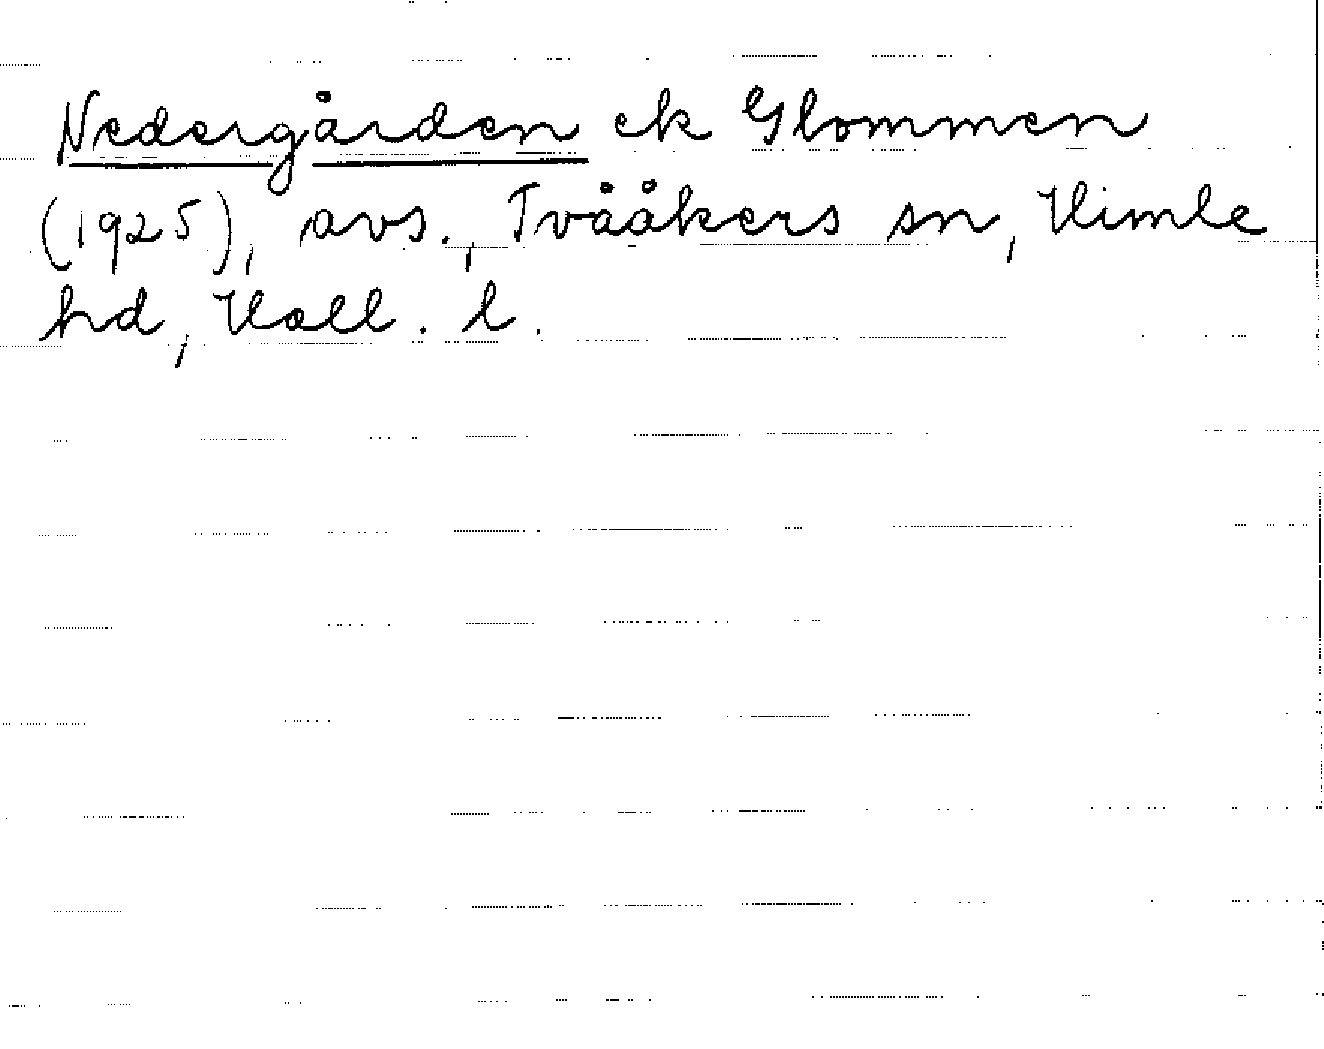 Nedergården ek Glommen
(1925), avs., Tvååkers sn, Himle
hd, Hall. l.